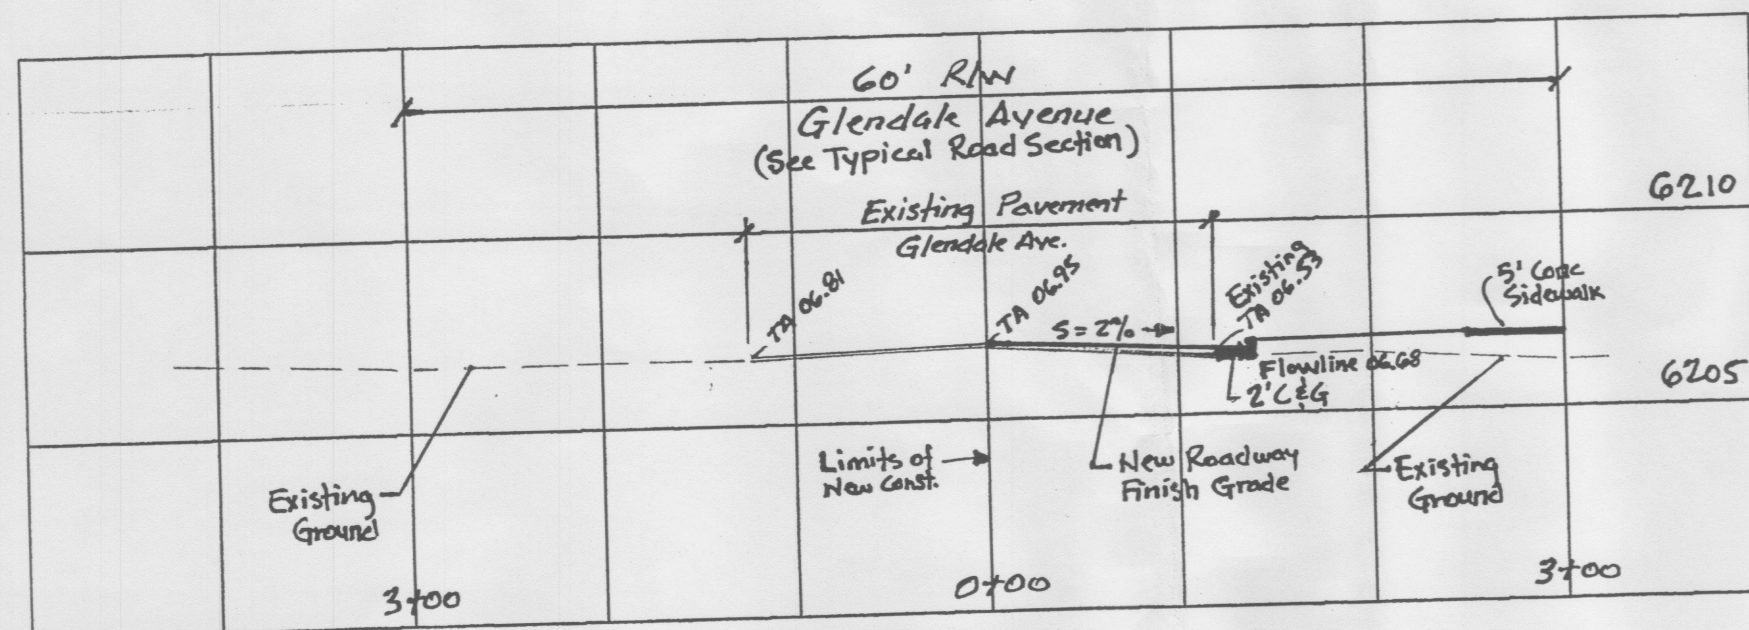 60' R/W
Glendale Avenue
(See Typical Road Section)
6210
Existing Pavement
Glendale Ave.
TA 06.81
TA 06.95
S=2%
Existing
TA 06.53
5' Conc
Sidewalk
Flowline 06.68
2' C&G
6205
Limits of
New Const.
New Roadway
Finish Grade
Existing
Ground
Existing
Ground
3+00
0+00
3+00